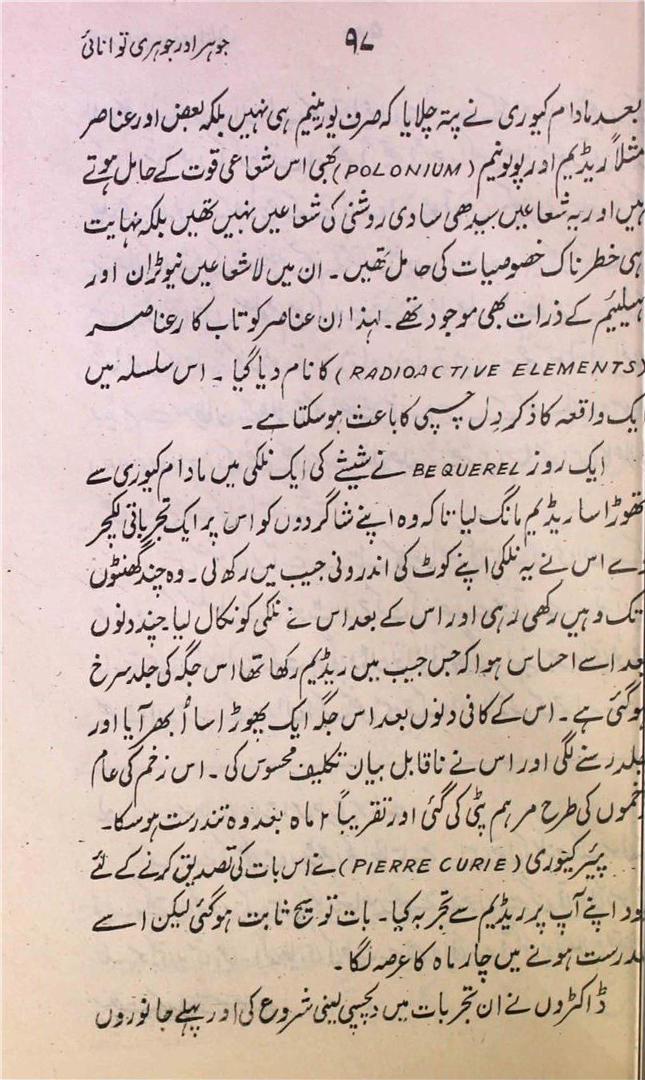 ۹۷
جوہر اور جوہری توانائی
بعد مادام کیوری نے پتہ چلایا کہ صرف یورینیم ہی نہیں بلکہ بعض اور عناصر
مثلاً ریڈیم اور پولونیم (POLONIUM) بھی اس شعاعی قوت کے حامل ہوتے
ہیں اور یہ شعاعیں سیدھی سادی روشنی کی شعاعیں نہیں تھیں بلکہ نہایت
ہی خطرناک خصوصیات کی حامل تھیں۔ ان میں لاشعاعیں نیوٹران اور
ہیلیئم کے ذرات بھی موجود تھے۔ لہذا ان عناصر کو تاب کار عناصر
(RADIOACTIVE ELEMENTS) کا نام دیا گیا۔ اس سلسلہ میں
ایک واقعہ کا ذکر دل چسپی کا باعث ہو سکتا ہے۔
ایک روز BEQUEREL نے شیشے کی ایک نلکی میں مادام کیوری سے
تھوڑا سا ریڈیم مانگ لیا تاکہ وہ اپنے شاگردوں کو اس پر ایک تجرباتی لیکچر
دے اس نے یہ نلکی اپنے کوٹ کی اندرونی جیب میں رکھ لی۔ وہ چند گھنٹوں
تک وہیں رکھی رہی اور اس کے بعد اس نے نلکی کو نکال لیا۔ چند دنوں
بعد اسے احساس ہوا کہ جس جیب میں ریڈیم رکھا تھا اس جگہ کی جلد سرخ
ہوگئی ہے۔ اس کے کافی دنوں بعد اس جگہ ایک پھوڑا سا اُبھر آیا اور
جلد رسنے لگی اور اس نے ناقابل بیان تکلیف محسوس کی۔ اس زخم کی عام
زخموں کی طرح مرہم پٹی کی گئی اور تقریباً ۲ ماہ بعد وہ تندرست ہو سکا۔
پیئر کیوری (PIERRE CURIE) نے اس بات کی تصدیق کرنے کے لئے
خود اپنے آپ پر ریڈیم سے تجربہ کیا۔ بات تو سچ ثابت ہوگئی لیکن اسے
تندرست ہونے میں چار ماہ کا عرصہ لگا۔
ڈاکٹروں نے ان تجربات میں دلچسپی لینی شروع کی اور پہلے جانوروں